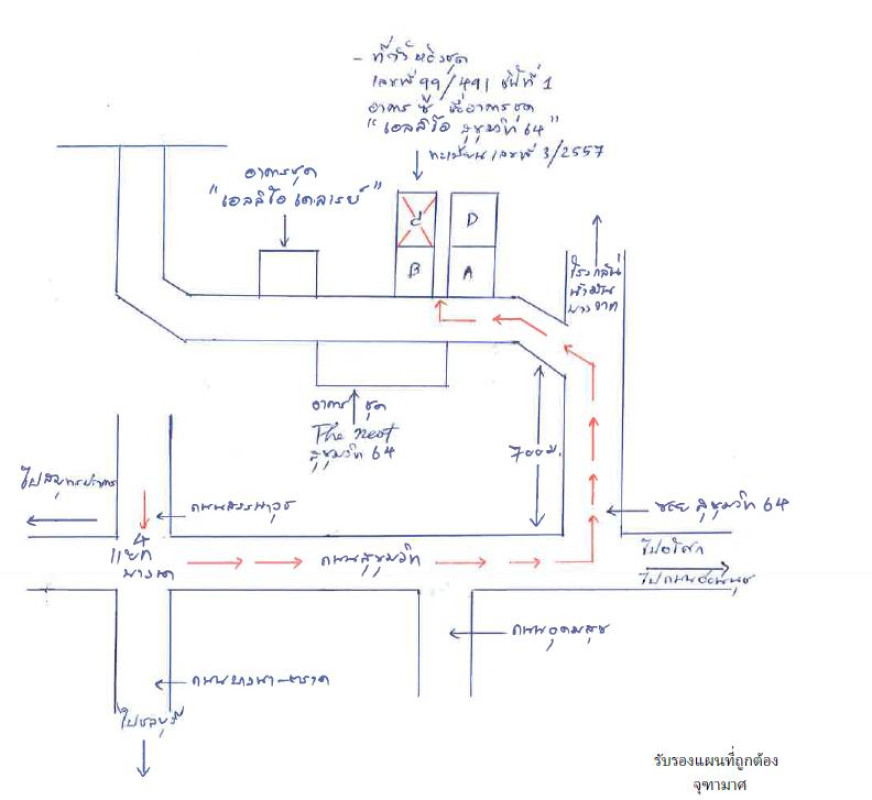 - ที่ตั้งห้องชุด
เลขที่ 99/491 ชั้นที่ 1
อาคาร ซี ชื่ออาคารชุด
"เอลลิโอ สุขุมวิท 64"
ทะเบียนเลขที่ 3/2557
อาคารชุด
"เอลลิโอ เดลเรย์"
C
D
B
A
โรงกลั่น
น้ำมัน
บางจาก
อาคาร ชุด
The nest
สุขุมวิท 64
700 ม.
ไปสมุทรปราการ
ถนนสรรพาวุธ
ซอย สุขุมวิท 64
4
แยก
บางนา
ถนนสุขุมวิท
ไปอโศก
ไปถนนอ่อนนุช
ถนนอุดมสุข
ถนนบางนา-ตราด
ไปชลบุรี
รับรองแผนที่ถูกต้อง
จุฑามาศ